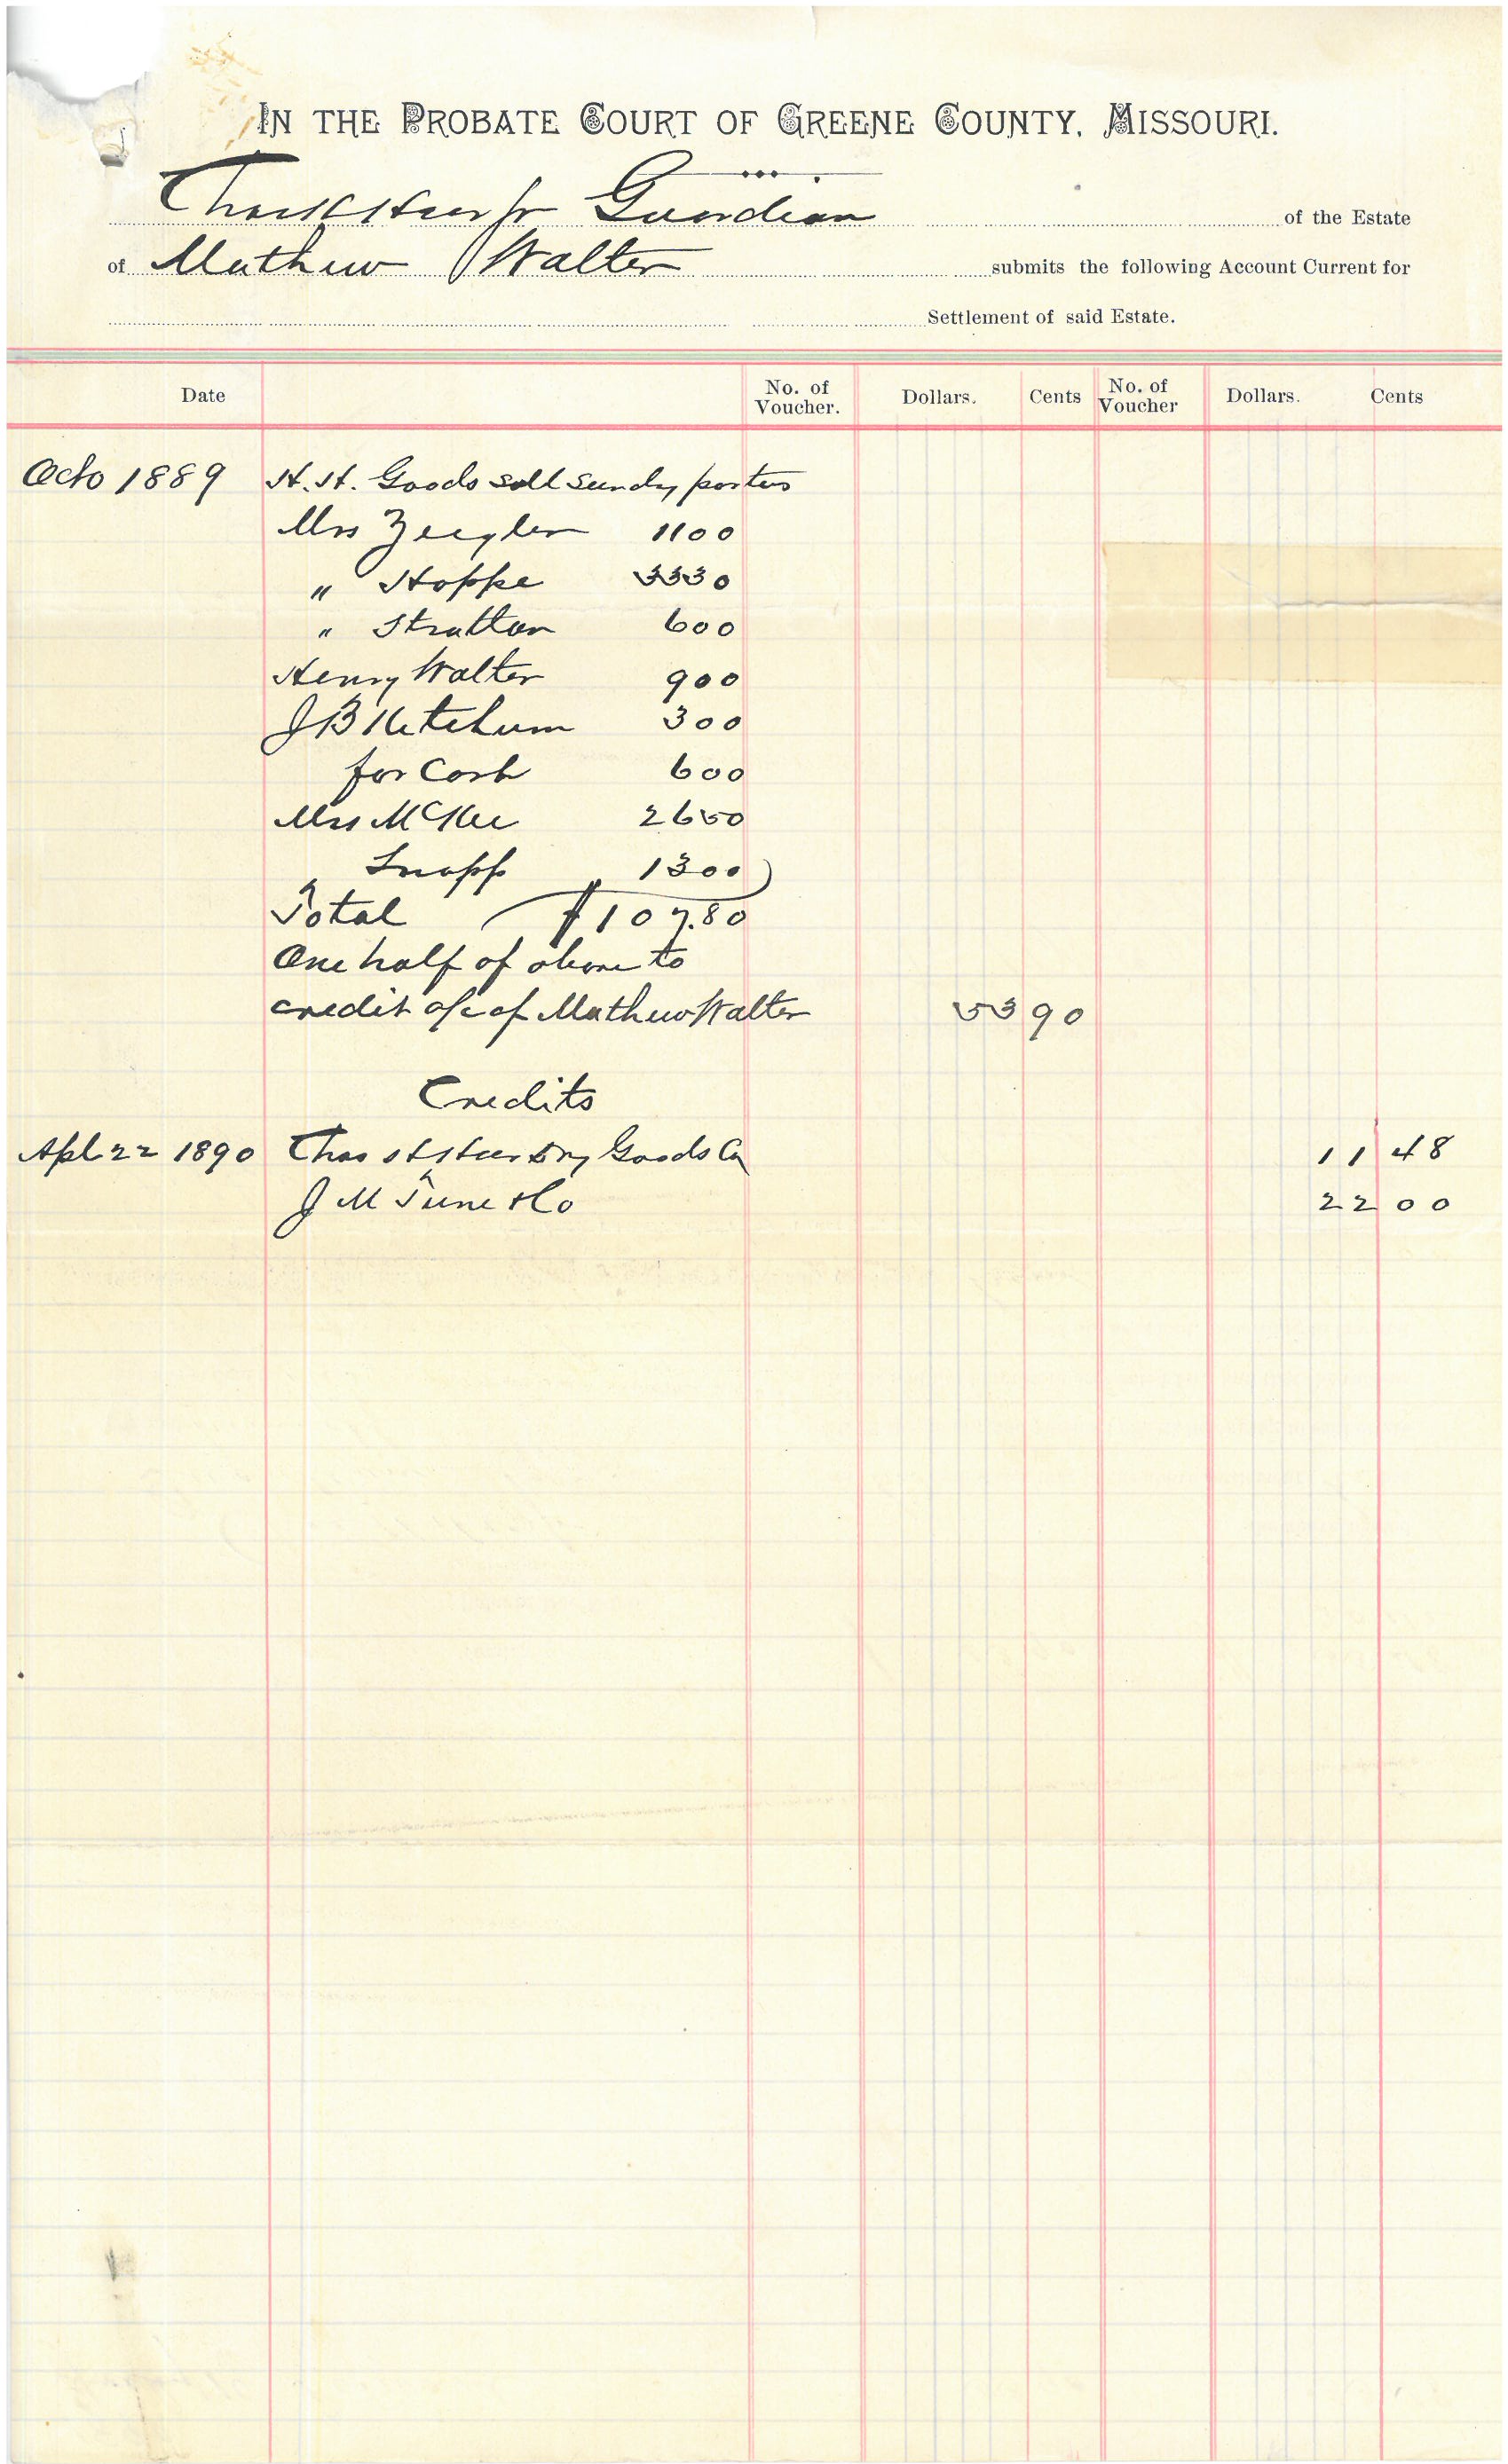 IN THE PROBATE COURT OF GREENE COUNTY, MISSOURI.
Guardian of the Estate
of Mathew Walter submits the following Account Current for
Settlement of said Estate.
Date No. of Voucher. Dollars. Cents No. of Voucher Dollars. Cents
Octo 1889 H. H. Goods sold sundry parties
Mrs Zeigler 1100
" Hoppe 3330
" Stratton 600
Henry Walter 900
J B Ketchum 300
for Cash 600
Mrs McKee 2650
" Snapp 1300
Total $107.80
One half of above to
credit a/c of Mathew Walter 53 90
Credits
Apl 22 1890 Chas Dry Goods Co 11 48
J M Tune & Co 22 00